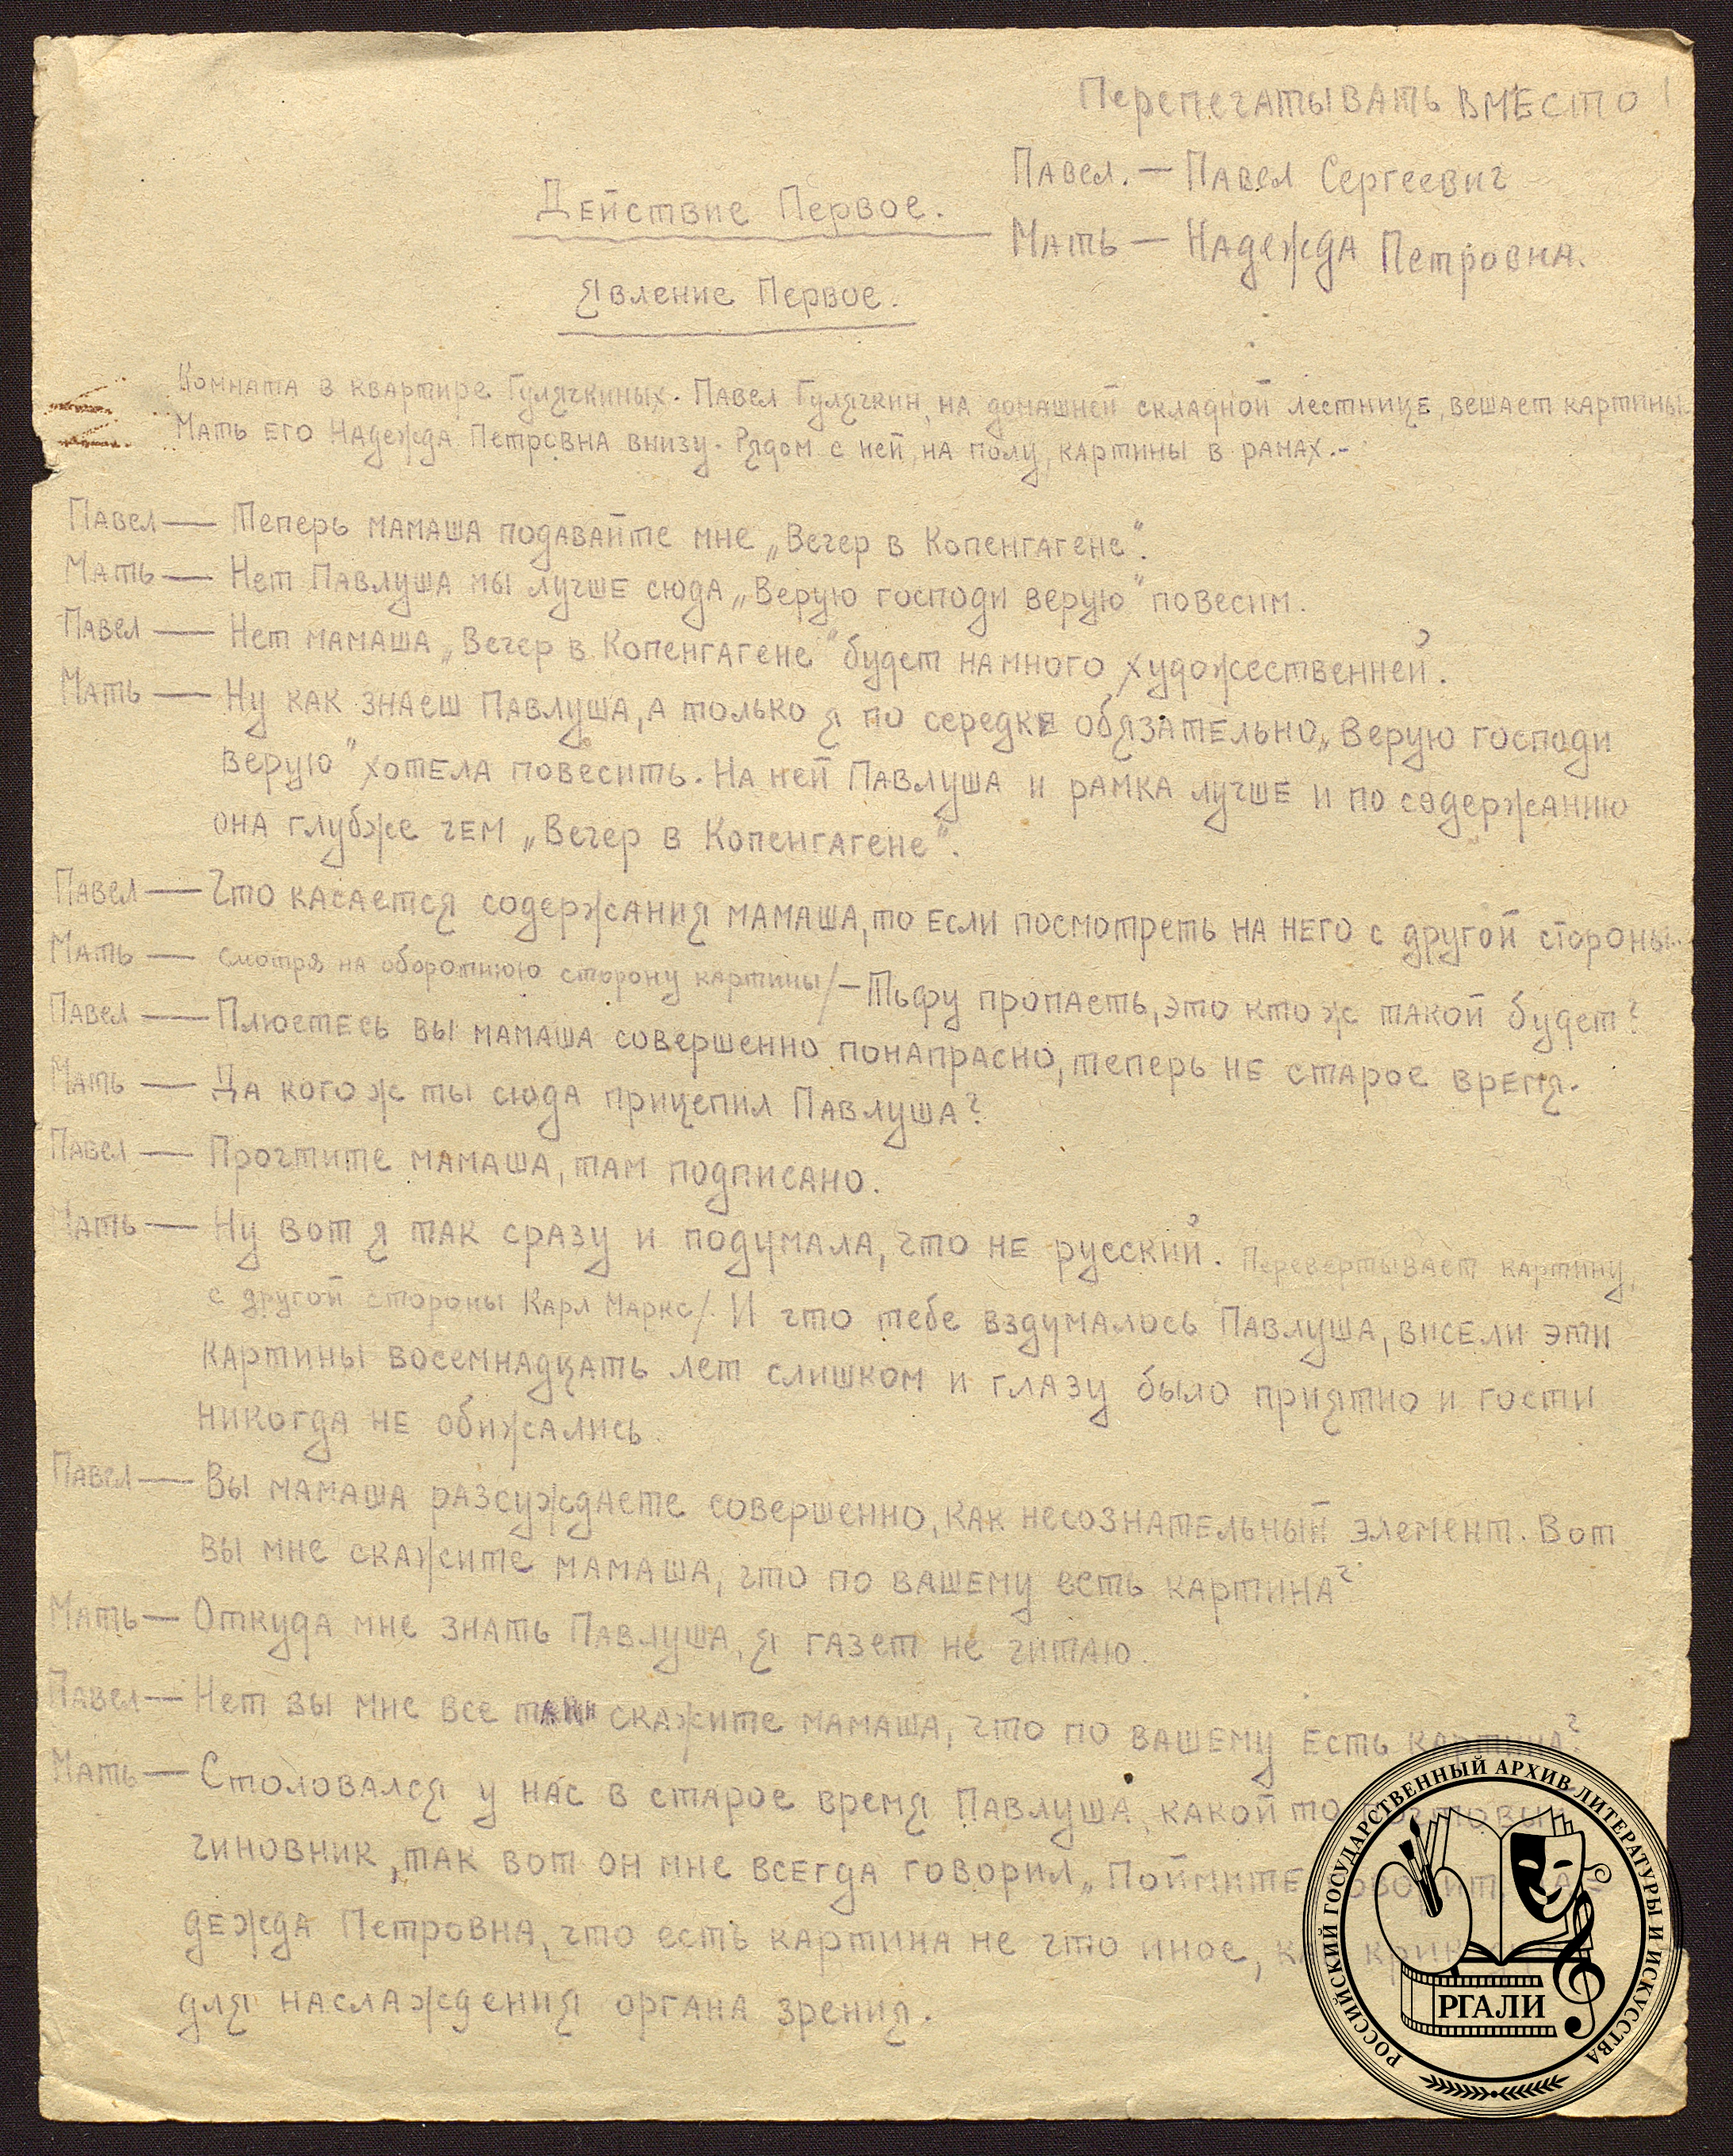 Перепечатывать вместо
Павел. — Павел Сергеевич
Мать — Надежда Петровна.
Действие Первое.
Явление Первое.
Комната в квартире Гулячкиных. Павел Гулячкин, на домашней складной лестнице, вешает картины.
Мать его Надежда Петровна внизу. Рядом с ней, на полу, картины в рамах.-
Павел — Теперь мамаша подавайте мне „Вечер в Копенгагене“.
Мать — Нет Павлуша мы лучше сюда „Верую господи верую“ повесим.
Павел — Нет мамаша „Вечер в Копенгагене“ будет намного художественней.
Мать — Ну как знаеш Павлуша, а только я по середке обязательно „Верую господи
верую“ хотела повесить. На ней Павлуша и рамка лучше и по содержанию
она глубже чем „Вечер в Копенгагене“.
Павел — Что касается содержания мамаша, то если посмотреть на него с другой стороны..
Мать — смотря на оборотнюю сторону картины/ — Тьфу пропасть, это кто ж такой будет?
Павел — Плюетесь вы мамаша совершенно понапрасно, теперь не старое время.
Мать — Да кого ж ты сюда прицепил Павлуша?
Павел — Прочтите мамаша, там подписано.
Мать — Ну вот я так сразу и подумала, что не русский. Перевертывает картину,
с другой стороны Карл Маркс/. И что тебе вздумалось Павлуша, висели эти
картины восемнадцать лет слишком и глазу было приятно и гости
никогда не обижались.
Павел — Вы мамаша разсуждаете совершенно, как несознательный элемент. Вот
вы мне скажите мамаша, что по вашему есть картина?
Мать — Откуда мне знать Павлуша, я газет не читаю.
Павел — Нет вы мне все таки скажите мамаша, что по вашему есть картина?
Мать — Столовался у нас в старое время Павлуша, какой то почтовый
чиновник, так вот он мне всегда говорил „Поймите говорит На-
дежда Петровна, что есть картина не что иное, как крик
для наслаждения органа зрения.
РОССИЙСКИЙ ГОСУДАРСТВЕННЫЙ АРХИВ ЛИТЕРАТУРЫ И ИСКУССТВА
РГАЛИ